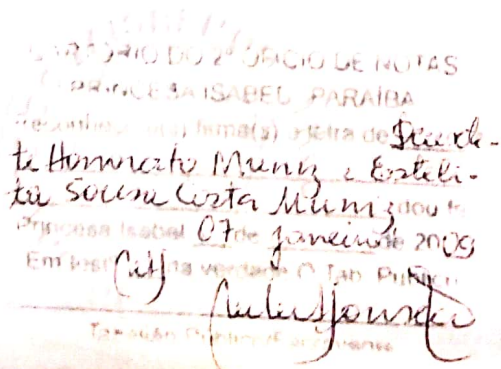 CARTÓRIO DO 2º OFICIO DE NOTAS
PRINCESA ISABEL PARAÍBA
Reconheço a(s) firma(s) e letra de
te Honorato Muniz e Esteli-
ta Sousa Costa Muniz dou fé
Princesa Isabel 07 de janeiro de 2009
Em test da verdade O Tab. Publico